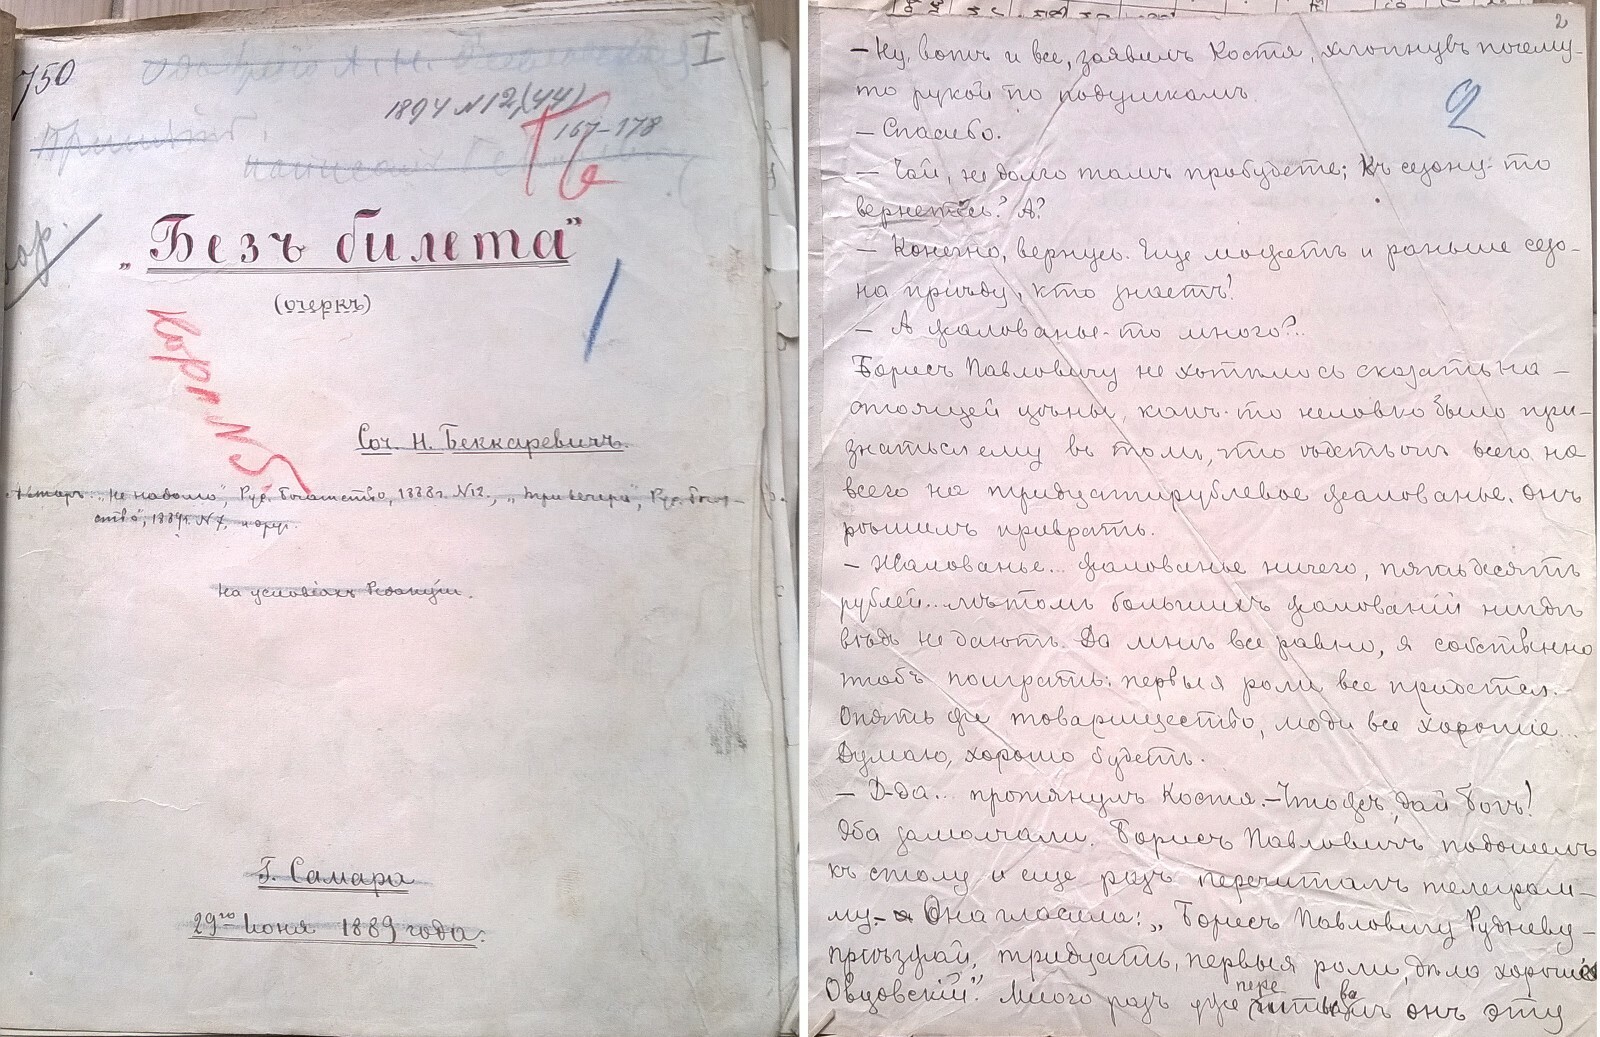 750
I
1894 N 12 (44)
167–178
„Безъ билета"
(очеркъ)
1
Корр. N 5
Соч. Н. Беккаревичъ.
Авторъ: „Не надолго", Рус. Богатство, 1888 г. N 12., „Три вечера", Рус. Бога-
тство", 1889 г. N 7, и друг.
На условіяхъ Редакціи.
Г. Самара
29го Іюня 1889 года.
2
2
– Ну, вотъ и все, заявилъ Костя, хлопнувъ почему-
то рукой по подушкамъ.
– Спасибо.
– Чай, не долго тамъ пробудете; къ сезону-то
вернетесь? А?
– Конечно, вернусь. Еще можетъ и раньше сезо-
на пріѣду, кто знаетъ!
– А жалованье-то много?..
Борисъ Павловичу не хотѣлось сказать на-
стоящей цѣны, какъ-то неловко было при-
знаться ему въ томъ, что ѣдетъ онъ всего на
всего на тридцатирублевое жалованье. Онъ
рѣшилъ приврать.
– Жалованье... жалованье ничего, пятьдесятъ
рублей... лѣтомъ большихъ жалованій нигдѣ
вѣдь не даютъ. Да мнѣ все равно, я собственно
чтобъ поиграть: первыя роли все придется.
Опять же товарищество, люди все хорошіе...
Думаю, хорошо будетъ.
– Д-да... протянулъ Костя. – Чтожъ, дай Богъ!
Оба замолчали. Борисъ Павловичъ подошелъ
къ столу и еще разъ перечиталъ телеграм-
му. Она гласила: „Борисъ Павловичу Рудневу –
пріѣзжай, тридцать, первыя роли, дѣло хорошее
Овцовскій". Много разъ уже перечитывалъ онъ эту